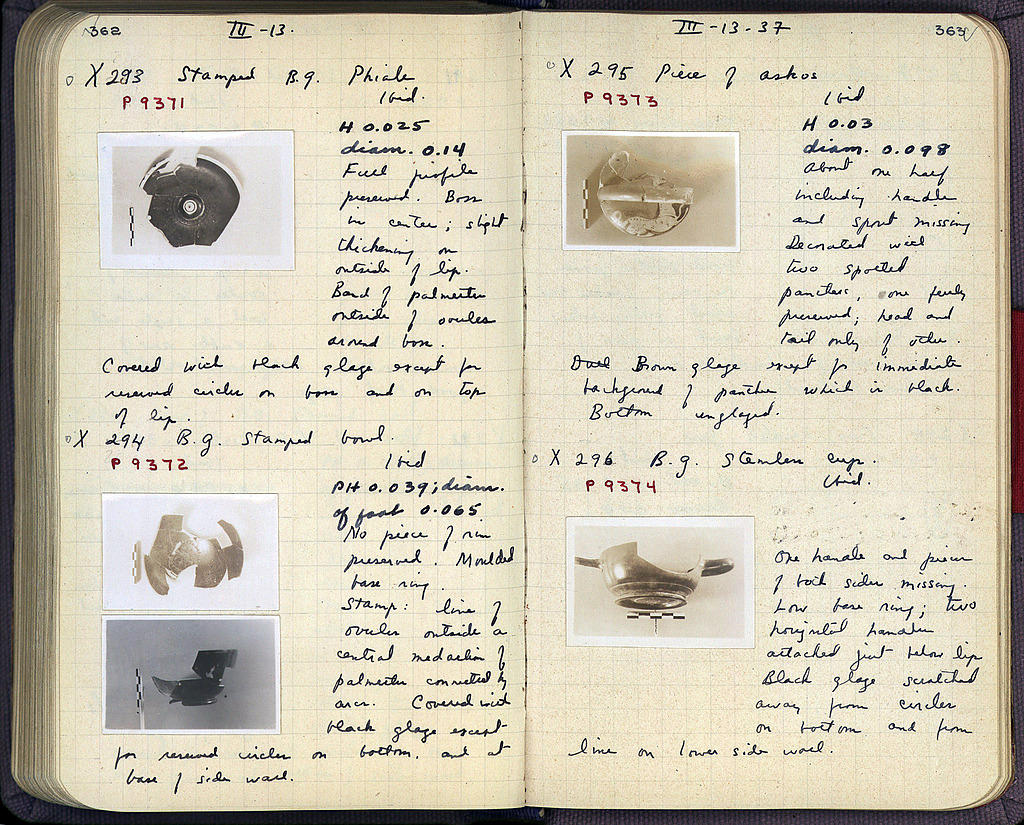 362
III -13.
X 293 Stamped B.g. Phiale
P 9371
Ibid.
H 0.025
diam. 0.14
Full profile
preserved. Boss
in center; slight
thickening on
outside of lip.
Band of palmettes
outside of ovules
around boss.
Covered with black glaze except for
reserved circles on boss and on top
of lip.
X 294 B.g. Stamped bowl.
P 9372
Ibid
PH 0.039; diam.
of foot 0.065
No piece of rim
preserved. Moulded
base ring.
Stamp: line of
ovules outside a
central medallion of
palmettes connected by
arcs. Covered with
black glaze except
for reserved circles on bottom, and at
base of side wall.
III -13-37
363
X 295 Piece of askos
P 9373
Ibid
H 0.03
diam. 0.098
About one half
including handle
and spout missing
Decorated with
two spotted
panthers, one fully
preserved; head and
tail only of other.
Dull Brown glaze except for immediate
background of panther which is black.
Bottom unglazed.
X 296 B.g. Stemless cup.
P 9374
Ibid.
One handle and pieces
of both sides missing.
Low base ring; two
horizontal handles
attached just below lip
Black glaze scratched
away from circles
on bottom and from
line on lower side wall.